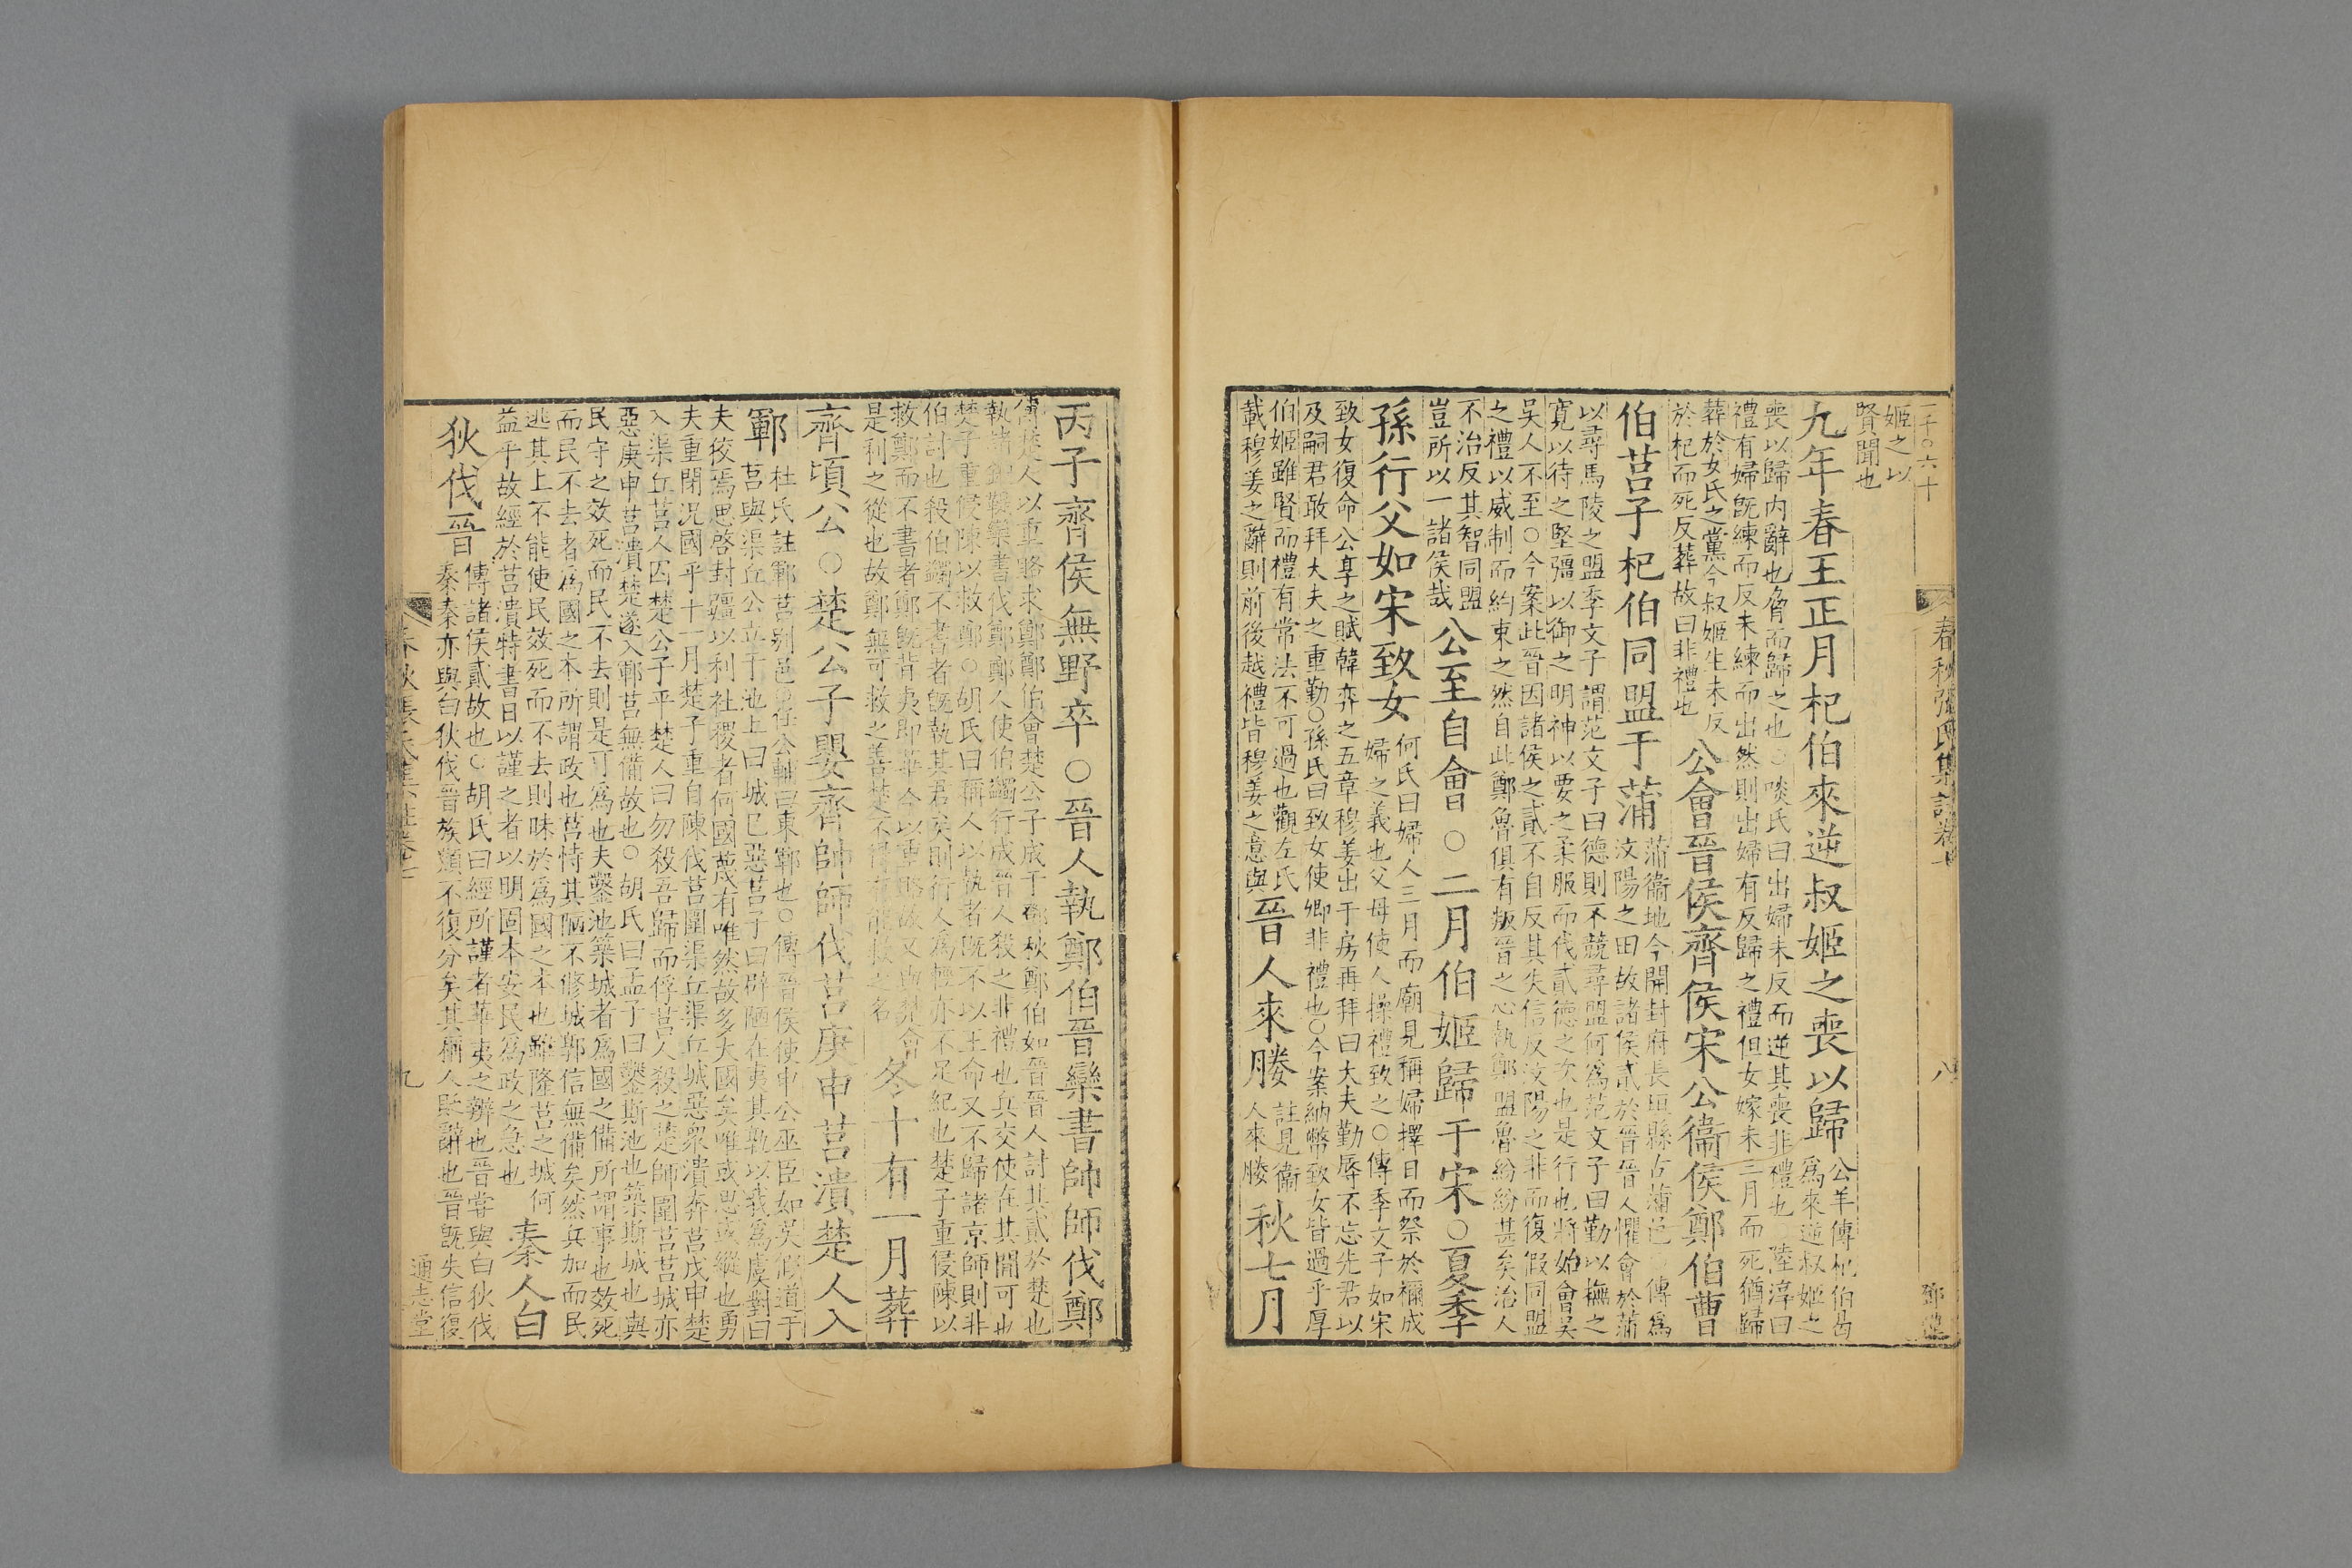 一千〇六十
春秋張氏集註卷
八
姬之以
賢聞也
九年春王正月杞伯來逆叔姬之喪以歸
公羊傳杞伯曷
爲來逆叔姬之
喪以歸内辭也脅而歸之也〇啖氏曰出婦未反而逆其喪非禮也〇陸淳曰
禮有婦旣練而反未練而出然則出婦有反歸之禮但女嫁未三月而死猶歸
葬於女氏之黨今叔姬生未反
於杞而死反葬故曰非禮也
公會晉侯齊侯宋公衞侯鄭伯曹
伯莒子杞伯同盟于蒲
蒲衞地今開封府長垣縣古蒲邑〇傳爲
汶陽之田故諸侯貳於晉晉人懼會於蒲
以尋馬陵之盟季文子謂范文子曰德則不競尋盟何爲范文子曰勤以撫之
寬以待之堅彊以御之明神以要之柔服而伐貳德之次也是行也將始會吳
吳人不至〇今案此晉因諸侯之貳不自反其失信反汶陽之非而復假同盟
之禮以威制而約束之然自此鄭魯俱有叛晉之心執鄭盟魯紛紛甚矣治人
不治反其智同盟
豈所以一諸侯哉
公至自會〇二月伯姬歸于宋〇夏季
孫行父如宋致女
何氏曰婦人三月而廟見稱婦擇日而祭於禰成
婦之義也父母使人操禮致之〇傳季文子如宋
致女復命公享之賦韓奕之五章穆姜出于房再拜曰大夫勤辱不忘先君以
及嗣君敢拜大夫之重勤〇孫氏曰致女使卿非禮也〇今案納幣致女皆過乎厚
伯姬雖賢而禮有常法不可過也觀左氏
載穆姜之辭則前後越禮皆穆姜之意與
晉人來媵
註見衞
人來媵
秋七月
丙子齊侯無野卒〇晉人執鄭伯晉欒書帥師伐鄭
傳楚人以重賂求鄭鄭伯會楚公子成于鄧秋鄭伯如晉晉人討其貳於楚也
執諸銅鞮欒書伐鄭鄭人使伯蠲行成晉人殺之非禮也兵交使在其間可也
楚子重侵陳以救鄭〇胡氏曰稱人以執者旣不以王命又不歸諸京師則非
伯討也殺伯蠲不書者旣執其君矣則行人爲輕亦不足紀也楚子重侵陳以
救鄭而不書者鄭旣背夷即華今以重賂故又與楚會
是利之從也故鄭無可救之善楚不得有能救之名
冬十有一月葬
齊頃公〇楚公子嬰齊帥師伐莒庚申莒潰楚人入
鄆
杜氏註鄆莒别邑〇任公輔曰東鄆也〇傳晉侯使申公巫臣如吳假道于
莒與渠丘公立于池上曰城已惡莒子曰辟陋在夷其孰以我爲虞對曰
夫狡焉思啓封疆以利社稷者何國蔑有唯然故多大國矣唯或思或縱也勇
夫重閉況國乎十一月楚子重自陳伐莒圍渠丘渠丘城惡衆潰奔莒戊申楚
入渠丘莒人囚楚公子平楚人曰勿殺吾歸而俘莒人殺之楚師圍莒莒城亦
惡庚申莒潰楚遂入鄆莒無備故也〇胡氏曰孟子曰鑿斯池也築斯城也與
民守之效死而民不去則是可爲也夫鑿池築城者爲國之備所謂事也效死
而民不去者爲國之本所謂政也莒恃其陋不修城郭信無備矣然兵加而民
逃其上不能使民效死而不去則昧於爲國之本也雖隆莒之城何
益乎故經於莒潰特書日以謹之者以明固本安民爲政之急也
秦人白
狄伐晉
傳諸侯貳故也〇胡氏曰經所謹者華夷之辨也晉嘗與白狄伐
秦秦亦與白狄伐晉族類不復分矣其稱人貶辭也晉旣失信復
九
通志堂